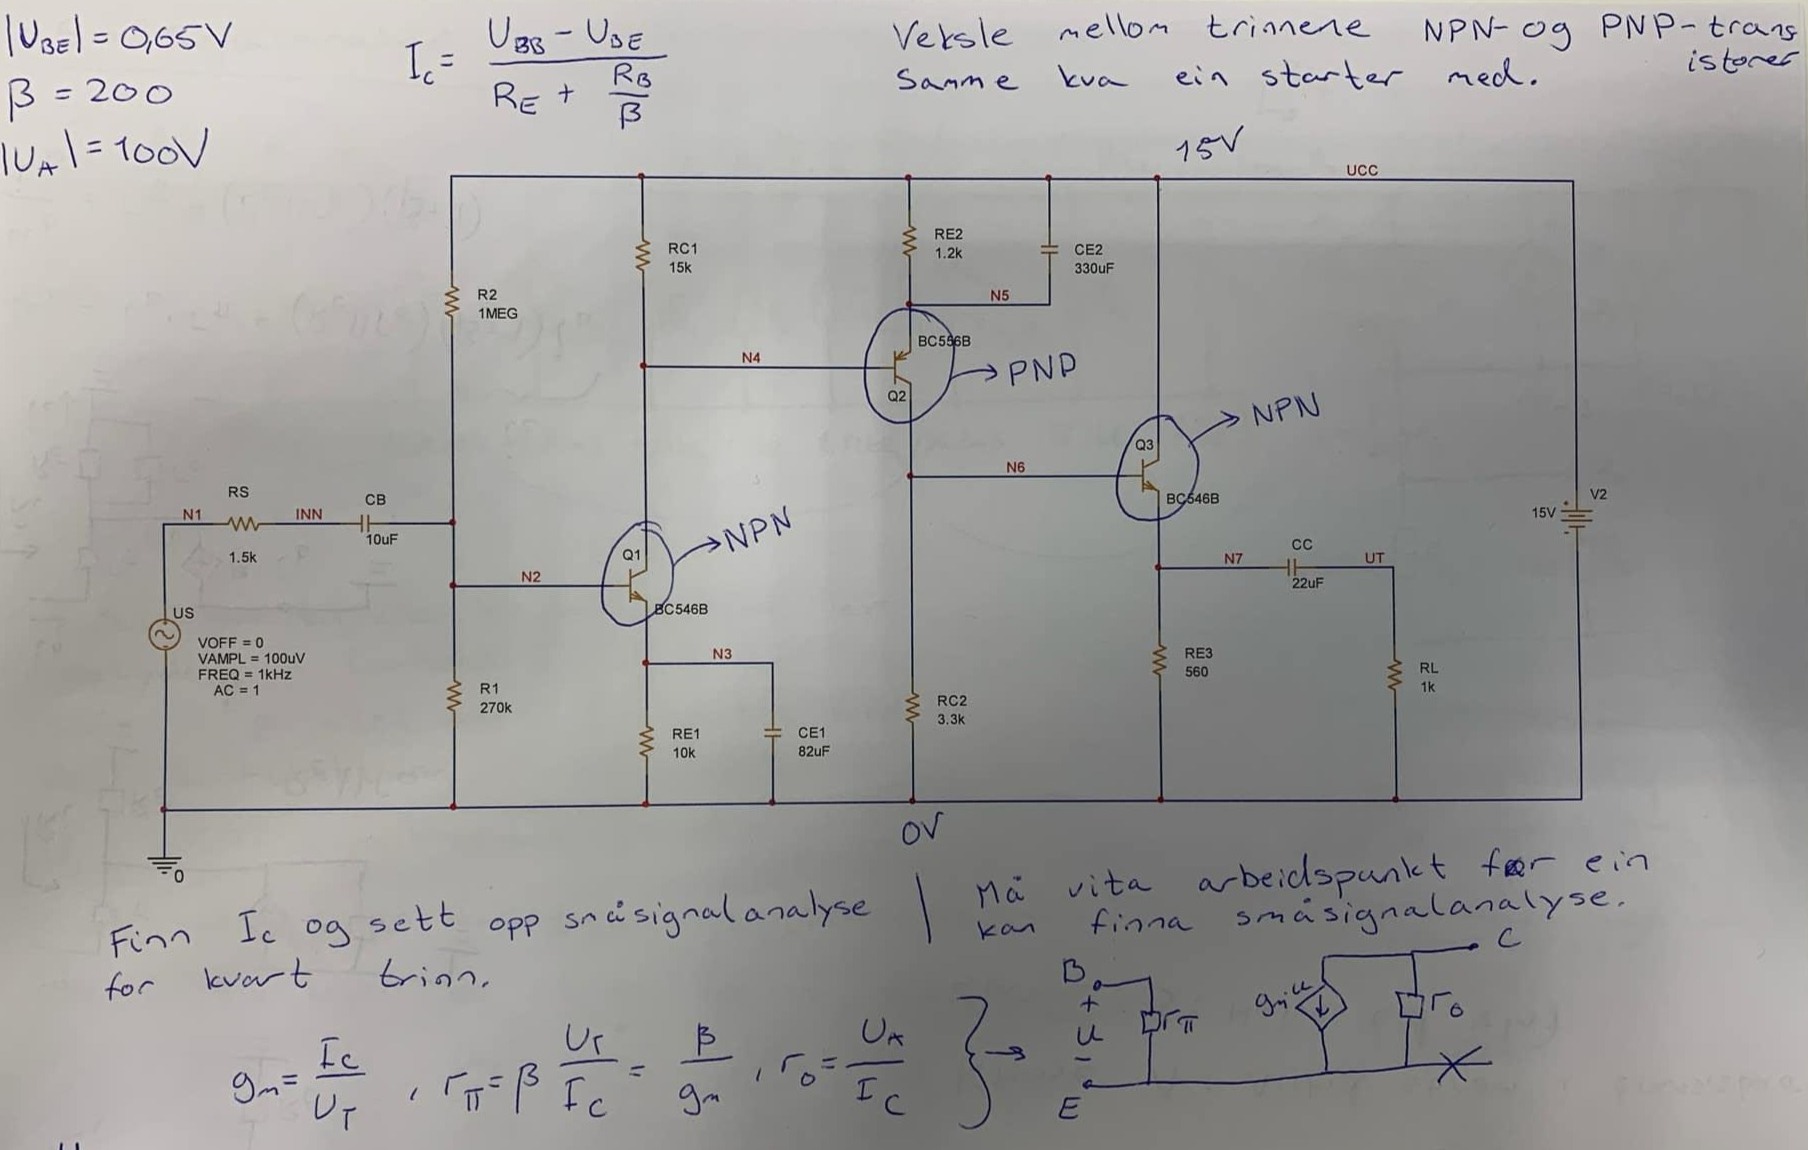 |U_BE| = 0,65V
β = 200
|U_A| = 100V
I_C = (U_BB - U_BE) / (R_E + R_B/β)
Veksle mellom trinnene NPN- og PNP-trans
istorer
Samme kva ein starter med.
15V
UCC
RC1
15k
RE2
1.2k
CE2
330uF
R2
1MEG
N5
BC556B
N4
→ PNP
Q2
→ NPN
Q3
N6
BC546B
V2
15V
RS
N1
INN
CB
10uF
1.5k
→ NPN
Q1
N2
BC546B
CC
N7
UT
22uF
US
VOFF = 0
VAMPL = 100uV
FREQ = 1kHz
AC = 1
N3
RE3
560
RL
1k
R1
270k
RC2
3.3k
RE1
10k
CE1
82uF
0V
0
Finn I_C og sett opp småsignalanalyse
for kvart trinn.
Må vita arbeidspunkt før ein
kan finna småsignalanalyse.
g_m = I_C / U_T , r_π = β U_T / I_C = β / g_m , r_o = U_A / I_C } →
B
+
u
-
E
r_π
g_m u
r_o
C